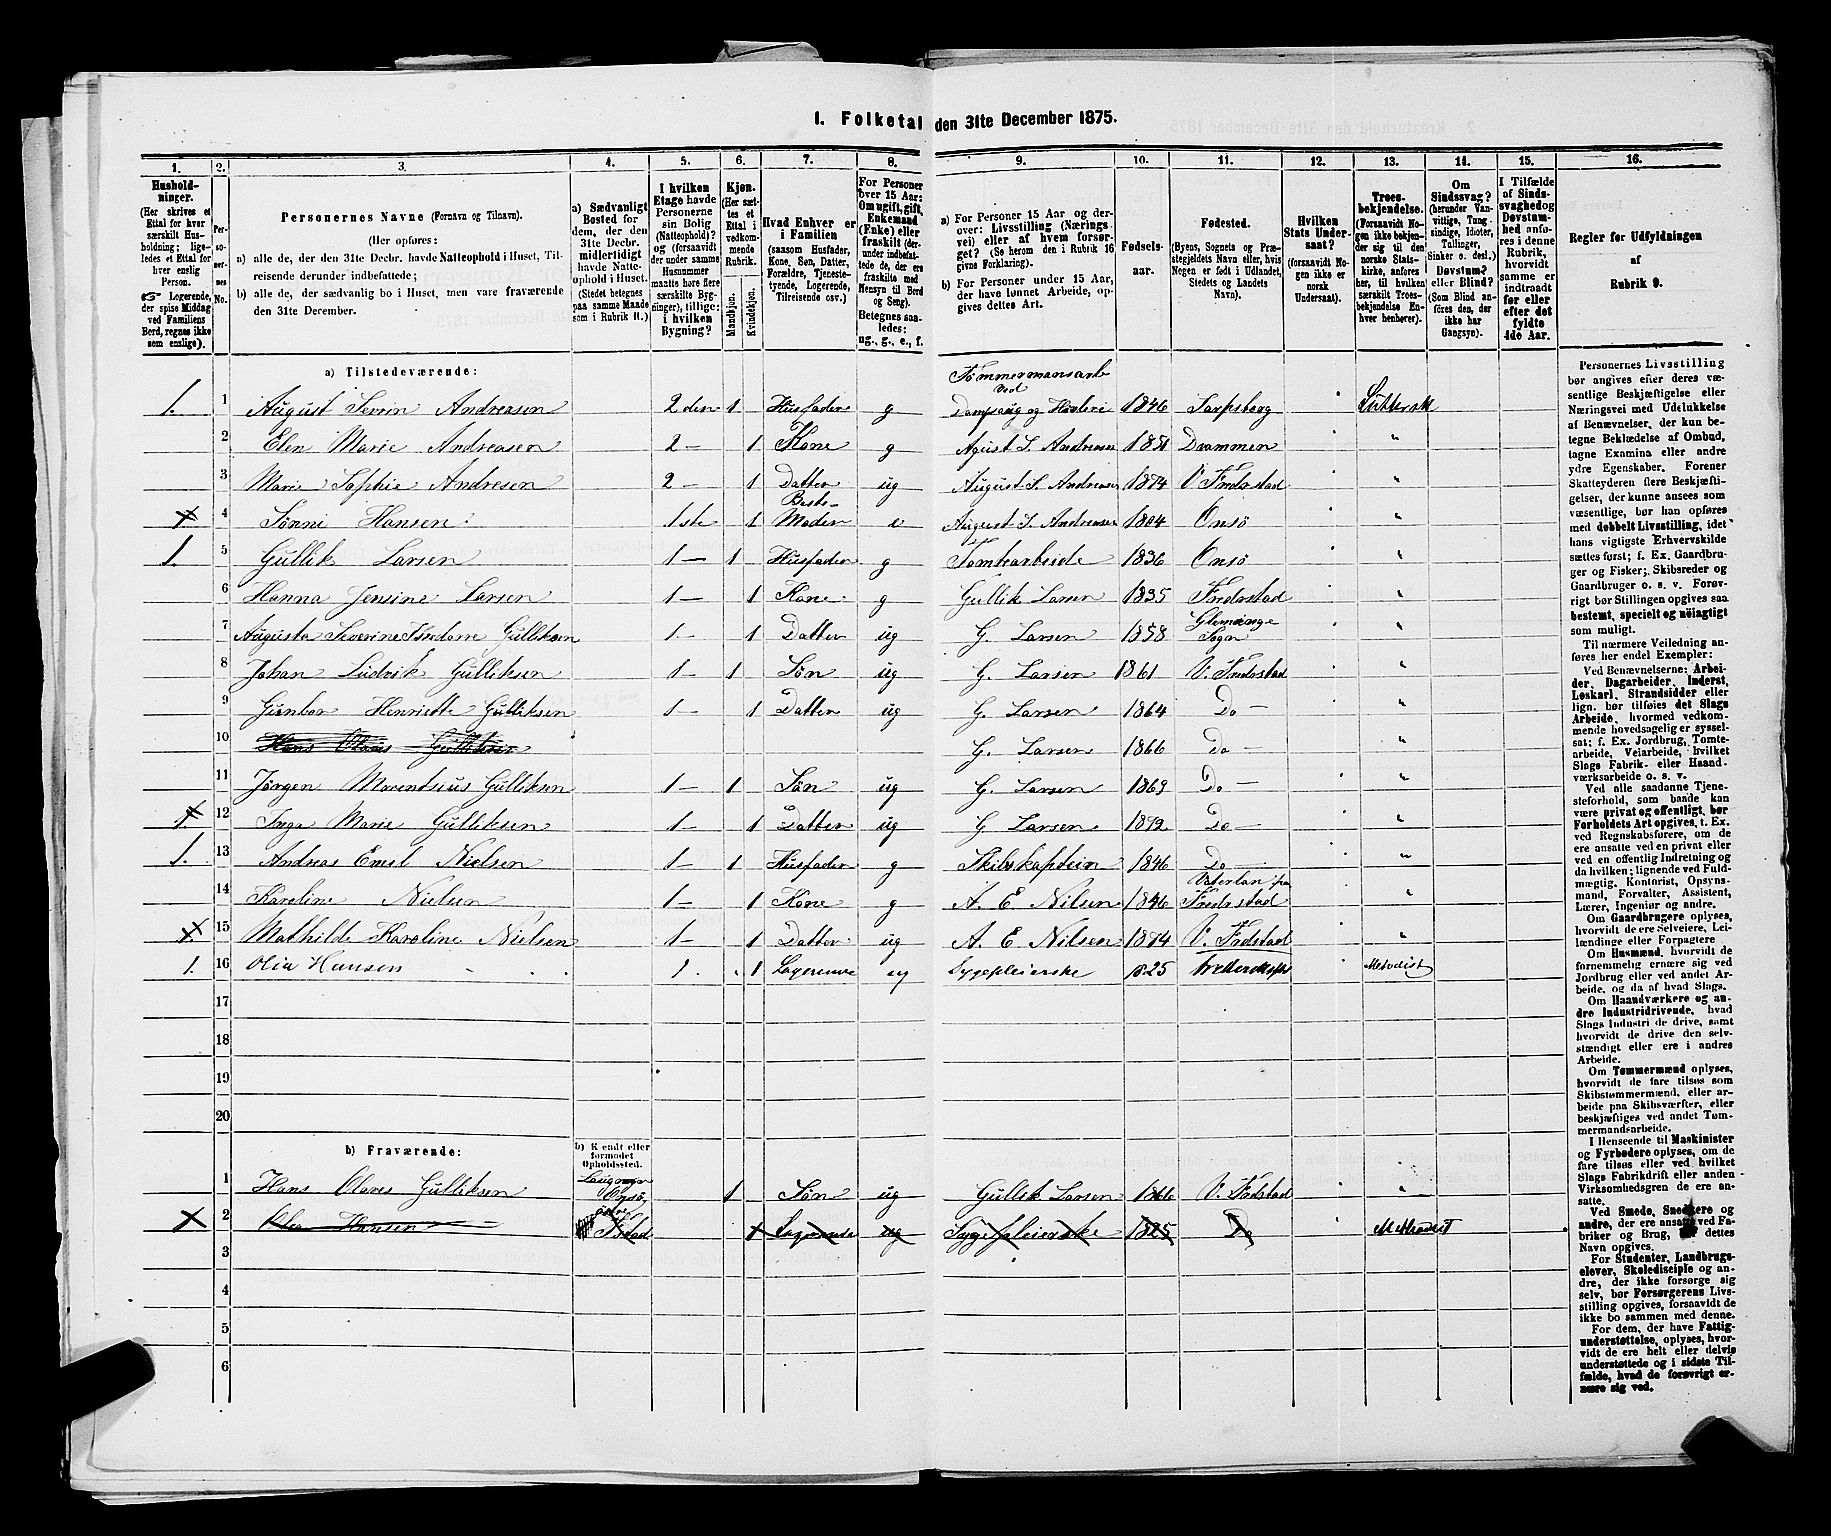 1. Folketal den 31te December 1875.
1. 2. 3. 4. 5. 6. 7. 8. 9. 10. 11. 12. 13. 14. 15. 16.
Hushold-
ninger.
(Her skrives et
Ettal for hver
særskilt Hus-
holdning; lige-
ledes et Ettal for
hver enslig
Person.
☞ Logerende,
der spise Middag
ved Familiens
Bord, regnes ikke
som enslige).
Per-
so-
ner-
nes
No.
Personernes Navne (Fornavn og Tilnavn).
(Her opføres:
a) alle de, der den 31te Decbr. havde Natteophold i Huset, Til-
reisende derunder indbefattede;
b) alle de, der sædvanlig bo i Huset, men vare fraværende
den 31te December.
a) Sædvanligt
Bosted for
dem, der den
31te Decbr.
midlertidigt
havde Natte-
ophold i Huset.
(Stedet betegnes
paa samme Maade
som i Rubrik 11.)
I hvilken
Etage havde
Personerne
sin Bolig
(Natteophold)?
og (forsaavidt
der under samme
Husnummer
maatte høre flere
særskilte Byg-
ninger), tillige:
i hvilken
Bygning?
Kjøn.
(Her sæt-
tes et
Ettal i
vedkom-
mende
Rubrik.
Mandkjøn.
Kvindekjøn.
Hvad Enhver er
i Familien
(saasom Husfader,
Kone, Søn, Datter,
Forældre, Tjeneste-
tyende, Logerende,
Tilreisende osv.)
For Personer
over 15 Aar:
Om ugift, gift,
Enkemand
(Enke) eller
fraskilt (der-
under indbefat-
tede de, der ere
fraskilte med
Hensyn til Bord
og Seng).
Betegnes saa-
ledes:
ug., g., e., f.
a) For Personer 15 Aar og der-
over: Livsstilling (Nærings-
vei) eller af hvem forsør-
get? (Se herom den i Rubrik 16
givne Forklaring).
b) For Personer under 15 Aar,
der have lønnet Arbeide, op-
gives dettes Art.
Fødsels-
aar.
Fødested.
(Byens, Sognets og Præ-
stegjeldets Navn eller, hvis
Nogen er født i Udlandet,
Stedets og Landets
Navn).
Hvilken
Stats Under-
saat?
(forsaavidt No-
gen ikke er
norsk
Undersaat).
Troes-
bekjendelse.
(Forsaavidt No-
gen ikke bekjen-
der sig til den
norske Stats-
kirke, anføres
her, til hvilken
særskilt Troes-
bekjendelse En-
hver henhører).
Om
Sindssvag?
(herunder Van-
vittige, Tung-
sindige, Idioter,
Tullinger,
Sinker o. desl.)
Døvstum?
eller Blind?
(Som Blind an-
føres den, der
ikke har
Gangsyn).
I Tilfælde
af Sinds-
svaghed og
Døvstum-
hed anfø-
res i denne
Rubrik,
hvorvidt
samme er
indtraadt
før eller
efter det
fyldte
4de Aar.
Regler for Udfyldningen
af
Rubrik 9.
a) Tilstedeværende:
1. 1 August Sevrin Andreasen 2 den 1 Husfader g Tømmermansarb ved Dampsaug og Høvleri 1846 Sarpsborg Luthersk
2 Elen Marie Andreasen 2 — 1 Kone g Agust S. Andreasen 1851 Drammen "
3 Marie Sophie Andresen 2 — 1 Datter ug August S. Andreasen 1874 V. Fredrstad "
4 Sønni Hansen 1ste 1 Beste-Moder e August S. Andreasen 1804 Onsø "
1. 5 Gullik Larsen 1 — 1 Husfader g Tomtearbeide 1836 Onsø "
6 Hanna Jensine Larsen 1 — 1 Kone g Gullik Larsen 1835 Fredrstad "
7 Augusta Severine Gulliksen 1 — 1 Datter ug G. Larsen 1858 Glemminge Sogn "
8 Johan Ludvik Gulliksen 1 — 1 Søn ug G. Larsen 1861 V. Fredrstad "
9 Gunbor Henriette Gulliksen 1 — 1 Datter ug G. Larsen 1864 Do — "
10 Hans Olaves Gulliksen G. Larsen 1866 Do — "
11 Jørgen Marentsius Gulliksen 1 — 1 Søn ug G. Larsen 1869 Do — "
1. 12 Inga Marie Gulliksen 1 — 1 Datter ug G. Larsen 1872 Do — "
1. 13 Andreas Emil Nielsen 1 — 1 Husfader g Skibskaptein 1846 Do — "
14 Karoline Nielsen 1 — 1 Kone g A. E. Nilsen 1846 Vaterlan Fredrstad "
1. 15 Mathilde Karoline Nielsen 1 — 1 Datter ug A. E. Nilsen 1874 V. Fredstad "
1. 16 Olia Hansen 1. 1 Logerende ug Sygepleierske 1825 Metodist
17
18
19
20
b) Fraværende:
b) Kjendt eller
formodet
Opholdssted.
1 Hans Olaves Gulliksen Onsø 1 Søn ug Gullik Larsen 1866 V. Fredstad "
2 Olia Hansen Fstad 1 Logerende ug Sygepleierske 1825 Do Methodist
3
4
5
6
Personernes Livsstilling
bør angives efter deres væ-
sentlige Beskjæftigelse eller
Næringsvei med Udelukkelse
af Benævnelser, der kun be-
tegne Beklædelse af Ombud,
tagne Examina eller andre
ydre Egenskaber. Forener
Skatteyderen flere Beskjæfti-
gelser, der kunne ansees som
væsentlige, bør han opføres
med dobbelt Livsstilling, idet
hans vigtigste Erhvervskilde
sættes først; f. Ex. Gaardbru-
ger og Fisker; Skibsreder og
Gaardbruger o. s. v. Forøv-
rigt bør Stillingen opgives saa
bestemt, specielt og nöiagtigt
som muligt.
Til nærmere Veiledning an-
føres her endel Exempler:
Ved Benævnelserne: Arbei-
der, Dagarbeider, Inderst,
Løskarl, Strandsidder eller
lign. bør tilføies det Slags
Arbeide, hvormed vedkom-
mende hovedsagelig er syssel-
sat; f. Ex. Jordbrug, Tomte-
arbeide, Veiarbeide, hvilket
Slags Fabrik- eller Haand-
værksarbeide o. s. v.
Ved alle saadanne Tjene-
steforhold, som baade kan
være privat og offentligt, bør
Forholdets Art opgives, t. Ex.
ved Regnskabsførere, om de
ere ansatte ved en privat eller
ved en offentlig Indretning og
da hvilken; lignende ved Fuld-
mægtig, Kontorist, Opsyns-
mand, Forvalter, Assistent,
Lærer, Ingeniør og andre.
Om Gaardbrugere oplyses,
hvorvidt de ere Selveiere, Lei-
lændinge eller Forpagtere
Om Husmænd, hvorvidt de
fornemmelig ernære sig ved
Jordbrug eller ved andet Ar-
beide, og da af hvad Slags.
Om Haandværkere og an-
dre Industridrivende, hvad
Slags Industri de drive, samt
hvorvidt de drive den selv-
stændigt eller ere i andres
Arbeide.
Om Tømmermænd oplyses,
hvorvidt de fare tilsøs som
Skibstømmermænd, eller ar-
beide paa Skibsværfter, eller
beskjæftiges ved andet Tøm-
mermandsarbeide.
I Henseende til Maskinister
og Fyrbødere oplyses, om de
fare tilsøs eller ved hvilket
Slags Fabrikdrift eller anden
Virksomhedsgren de ere an-
satte.
Ved Smede, Snedkere og
andre, der ere ansatte ved Fa-
briker og Brug, bør dettes
Navn opgives.
For Studenter, Landbrugs-
elever, Skoledisciple og an-
dre, der ikke forsørge sig
selv, bør Forsørgerens Livs-
stilling opgives, forsaavidt de
ikke bo sammen med denne.
For dem, der have Fattig-
understøttelse, oplyses, hvor-
vidt de ere helt eller delvis
understøttede og i sidste Til-
fælde, hvad de forøvrigt er-
nære sig ved.